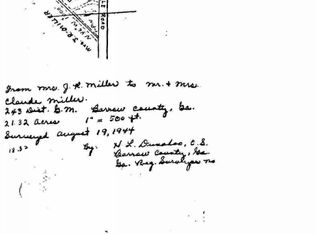 Mrs J.R. Miller
Road
from Mrs J. R. Miller to Mr. & Mrs
Claude Miller.
243 Dist. G.M. Barrow County, Ga.
21.32 Acres 1" = 500 ft.
Surveyed August 19, 1944
By: H L. Dunahoo, C.S.
Barrow County, Ga
Ga. Reg. Surveyor no